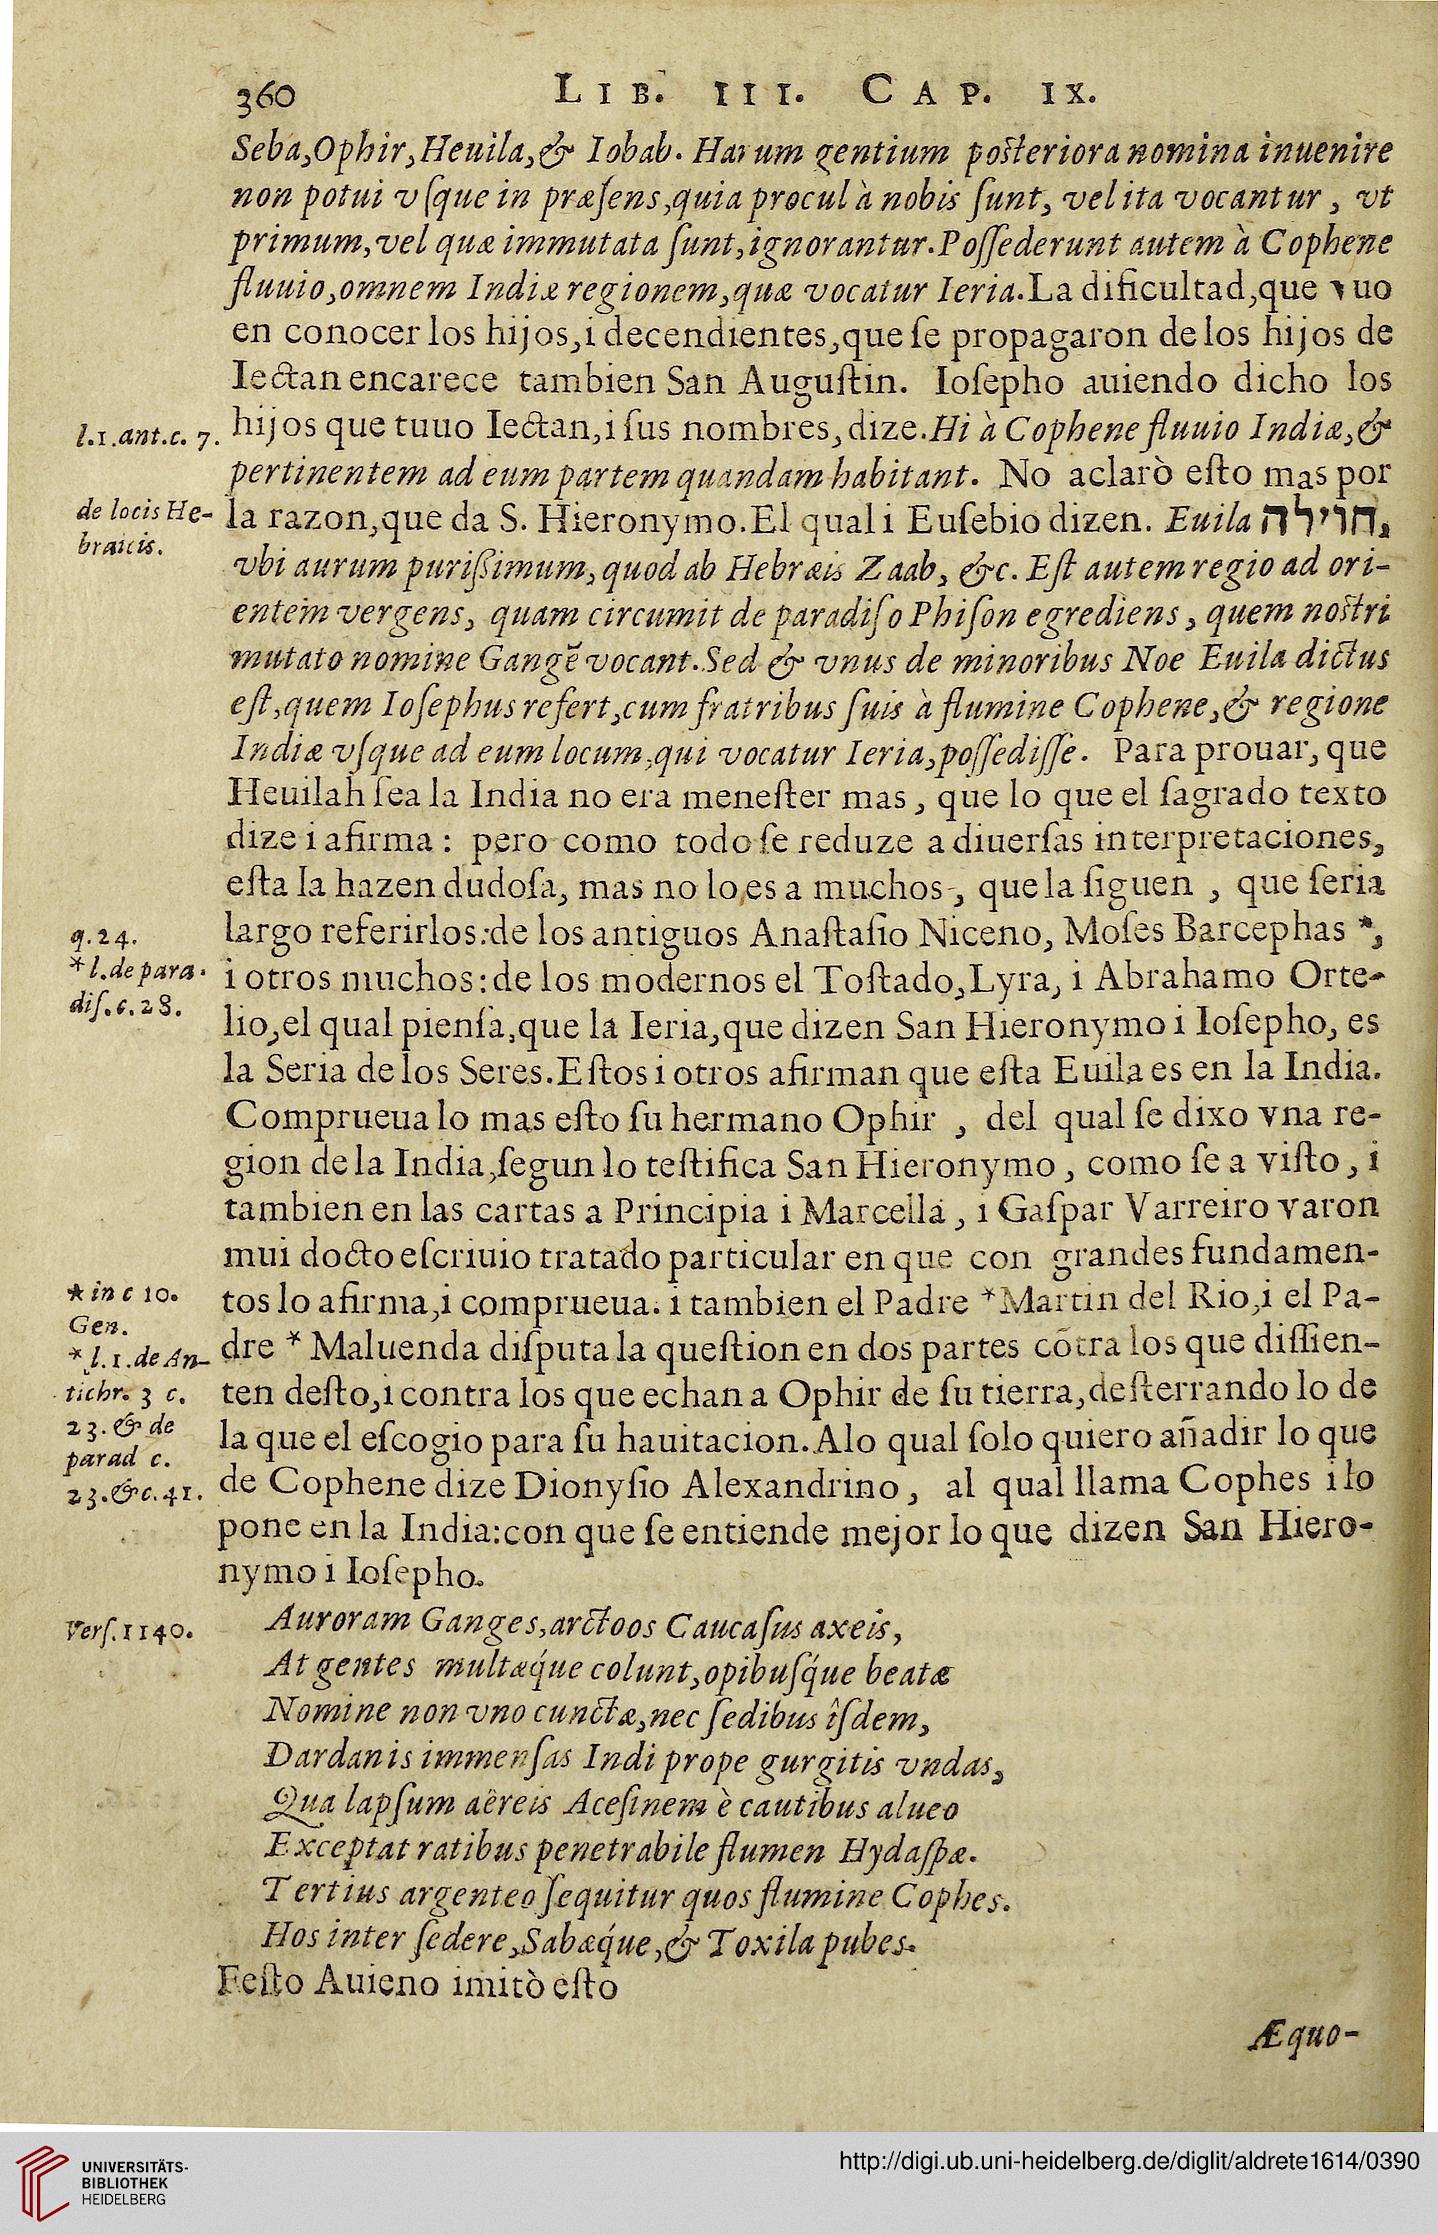 360 LIB. III. CAP. IX.
Seba,Ophir,Heuila,& Iobab. Harum gentium posteriora nomina inuenire
non potui vſque in præſens,quia procul à nobis ſunt, vel ita vocantur , vt
primum,vel quæ immutata ſunt,ignorantur.Poſſederunt autem à Cophene
fluuio,omnem Indiæ regionem,quæ vocatur Ieria.La dificultad,que vuo
en conocer los hijos,i decendientes,que ſe propagaron de los hijos de
Iectan encarece tambien San Auguſtin. Ioſepho auiendo dicho los
l.1.ant.c. 7.
hijos que tuuo Iectan,i ſus nombres,dize.Hi à Cophene fluuio Indiæ,&
pertinentem ad eum partem quandam habitant. No aclarò eſto mas por
de locis He-
braicis.
la razon,que da S. Hieronymo.El qual i Euſebio dizen. Euila חוילה,
vbi aurum puriſsimum, quod ab Hebræis Zaab, &c. Eſt autem regio ad ori-
entem vergens, quam circumit de paradiſo Phiſon egrediens , quem nostri
mutato nomine Gangē vocant.Sed & vnus de minoribus Noe Euila dictus
eſt,quem Ioſephus refert,cum fratribus ſuis à flumine Cophene,& regione
Indiæ vſque ad eum locum,qui vocatur Ieria,poſſediſſe. Para prouar, que
Heuilah ſea la India no era meneſter mas , que lo que el ſagrado texto
dize i afirma : pero como todo ſe reduze a diuerſas interpretaciones,
eſta la hazen dudoſa, mas no lo,es a muchos , que la ſiguen , que ſeria
q.24.
* l.de para.
diſ.c.28.
largo referirlos:de los antiguos Anaſtaſio Niceno, Moſes Barcephas *,
i otros muchos:de los modernos el Toſtado,Lyra, i Abrahamo Orte-
lio,el qual pienſa,que la Ieria,que dizen San Hieronymo i Ioſepho, es
la Seria de los Seres.Eſtos i otros afirman que eſta Euila es en la India.
Comprueua lo mas eſto ſu hermano Ophir , del qual ſe dixo vna re-
gion de la India,ſegun lo teſtifica San Hieronymo , como ſe a viſto , i
tambien en las cartas a Principia i Marcella , i Gaſpar Varreiro varon
mui docto eſcriuio tratado particular en que con grandes fundamen-
* in c 10.
Gen.
* l.1.de An-
tichr. 3 c.
23.& de
parad c.
23.&c.41.
tos lo afirma,i comprueua. i tambien el Padre *Martin del Rio,i el Pa-
dre * Maluenda diſputa la queſtion en dos partes cōtra los que diſſien-
ten deſto,i contra los que echan a Ophir de ſu tierra,deſterrando lo de
la que el eſcogio para ſu hauitacion.Alo qual ſolo quiero añadir lo que
de Cophene dize Dionyſio Alexandrino , al qual llama Cophes i lo
pone en la India:con que ſe entiende mejor lo que dizen San Hiero-
nymo i Ioſepho.
Verſ.1140.
Auroram Ganges,arctoos Caucaſus axeis,
At gentes multæq́ue colunt,opibuſq́ue beatæ
Nomine non vno cunctæ,nec ſedibus îſdem,
Dardanis immenſas Indi prope gurgitis vndas,
Qua lapſum aëreis Aceſinem è cautibus alueo
Exceptat ratibus penetrabile flumen Hydaſpæ.
Tertius argenteo ſequitur quos flumine Cophes.
Hos inter ſedere,Sabæq́ue,& Toxila pubes.
Feſto Auieno imitò eſto
Æquo-
UNIVERSITÄTS-
BIBLIOTHEK
HEIDELBERG
http://digi.ub.uni-heidelberg.de/diglit/aldrete1614/0390